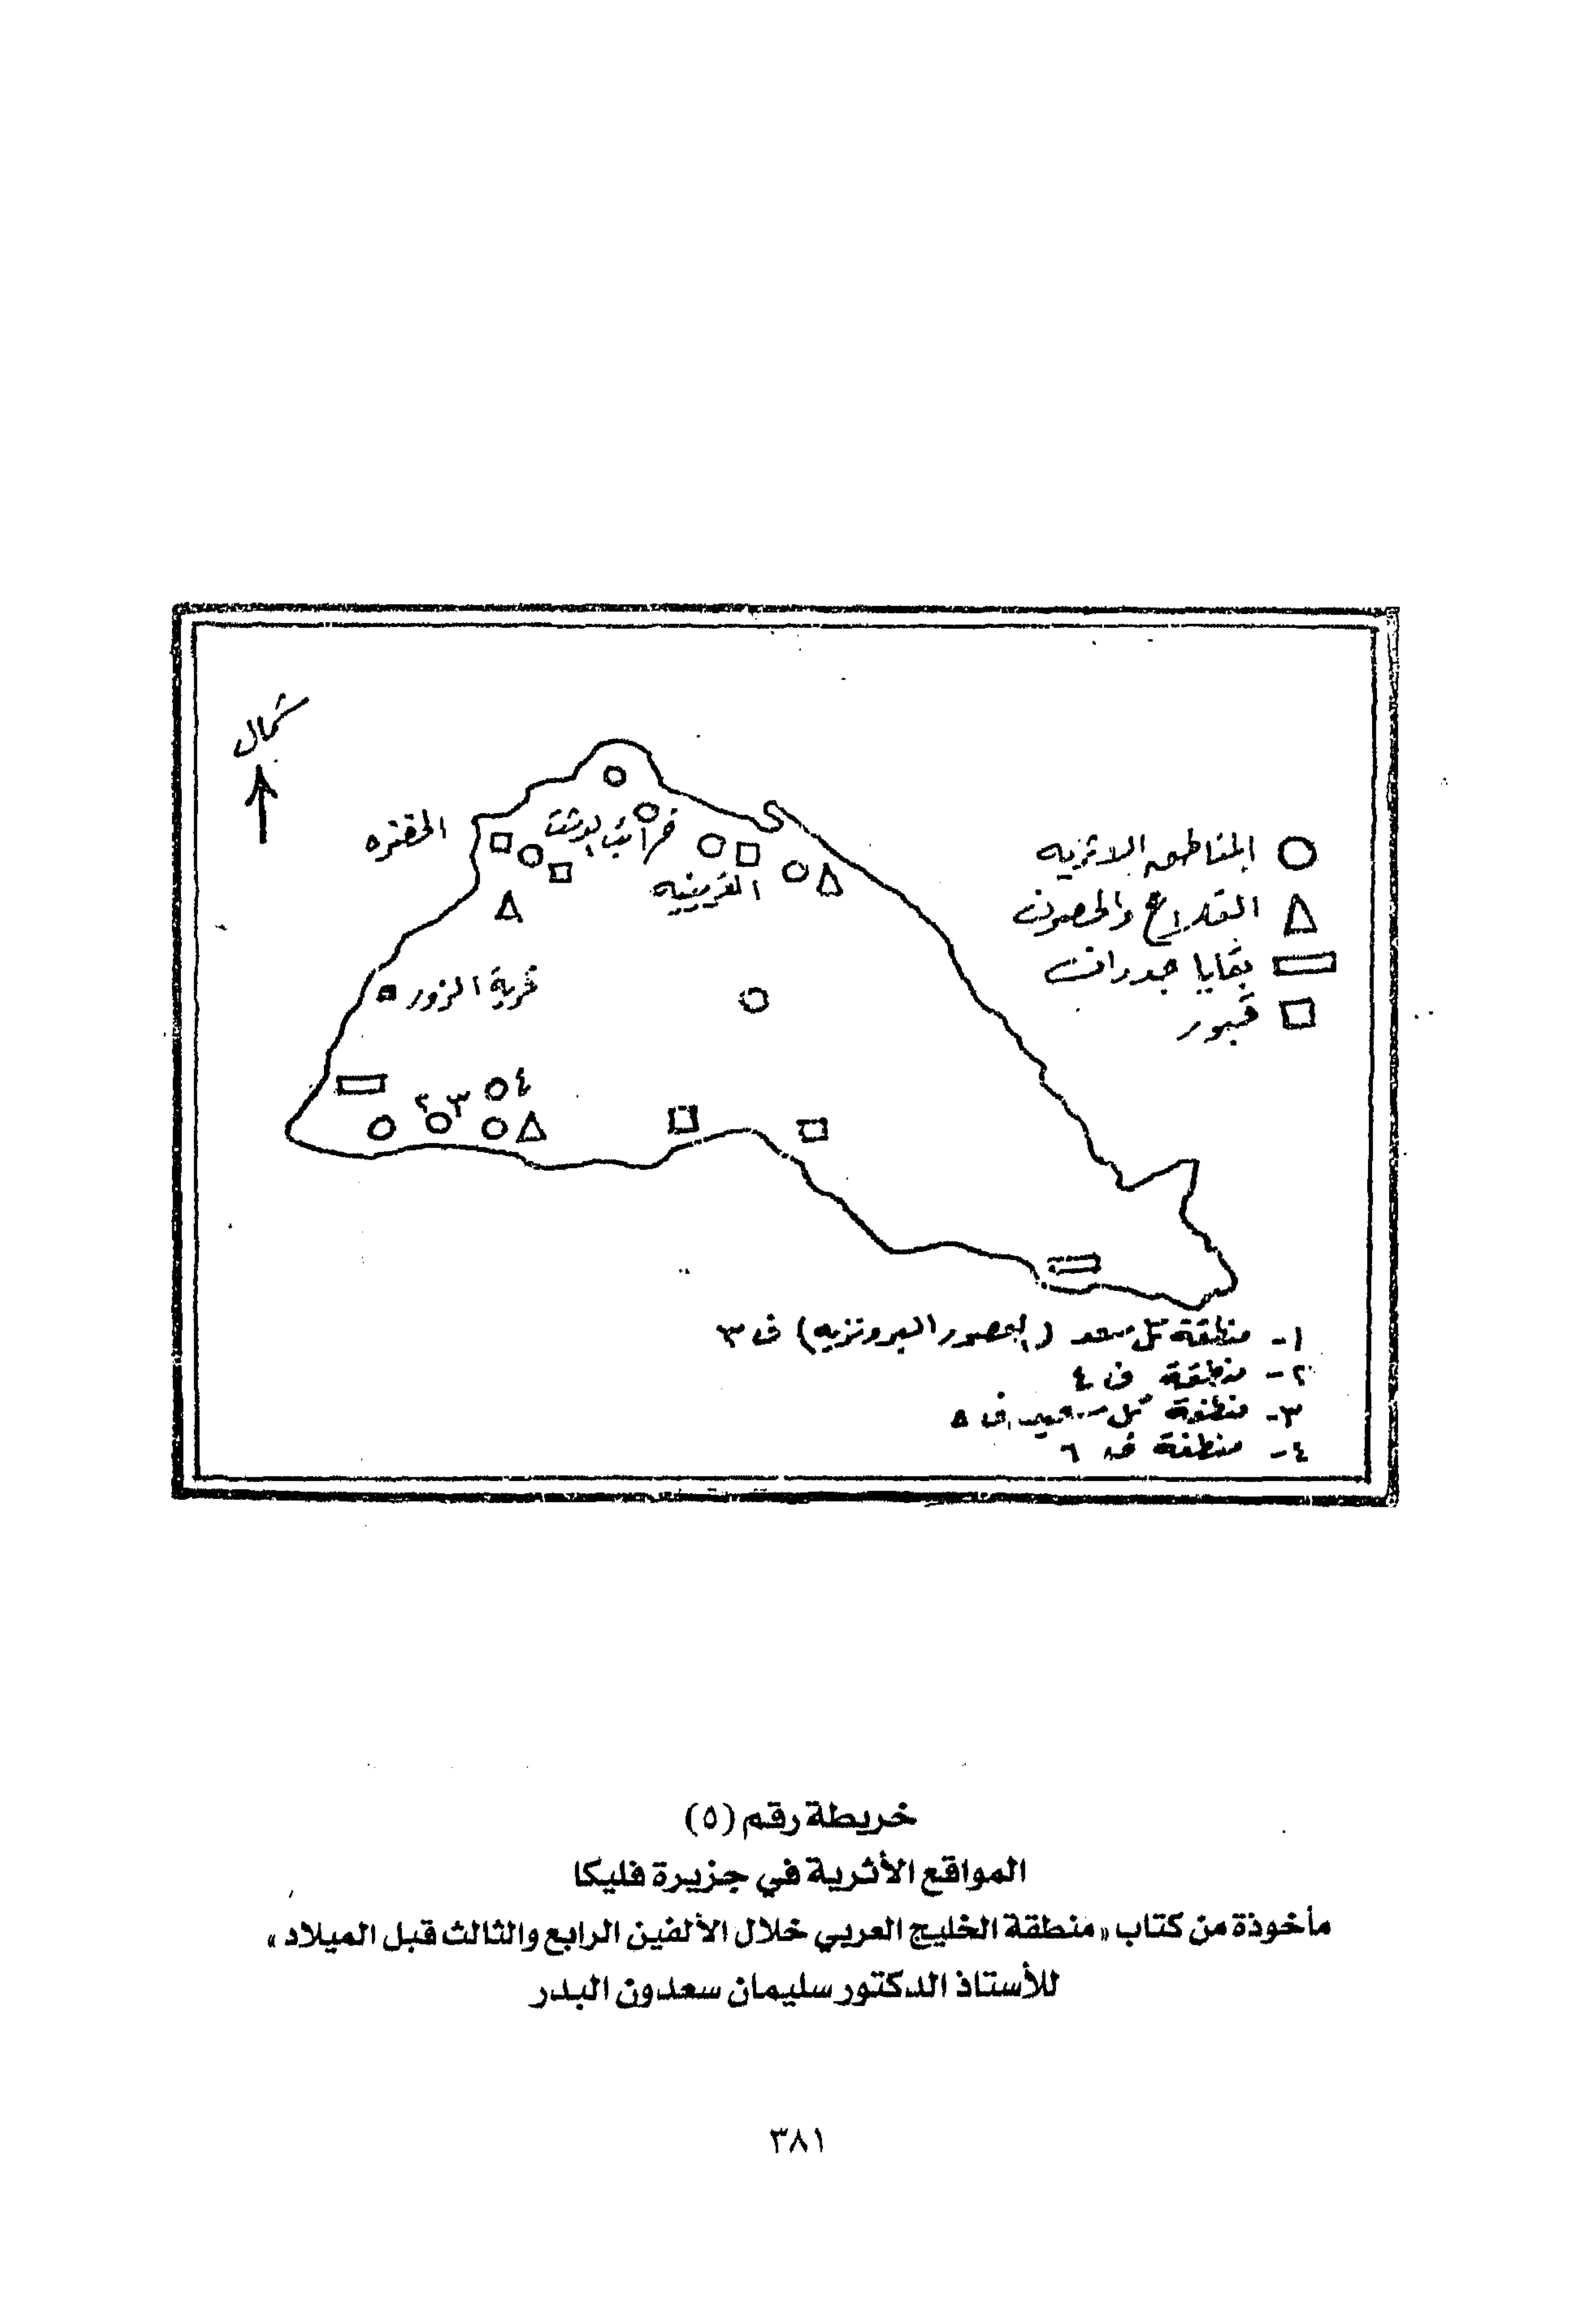 شمال
الخضره
خرائب الدشت
القرينيه
قرية الزور
٤
٢ ٣
المناطق الاثريه
القلاع والحصون
بقايا جدران
قبور
١- منطقة تل سعد (العصور البرونزيه) ف ٣
٢- منطقة ف ٤
٣- منطقة تل سعيد ف ٥
٤- منطقة ف ٦
خريطة رقم (٥)
المواقع الأثرية في جزيرة فليكا
مأخوذة من كتاب «منطقة الخليج العربي خلال الألفين الرابع والثالث قبل الميلاد»
للأستاذ الدكتور سليمان سعدون البدر
٣٨١